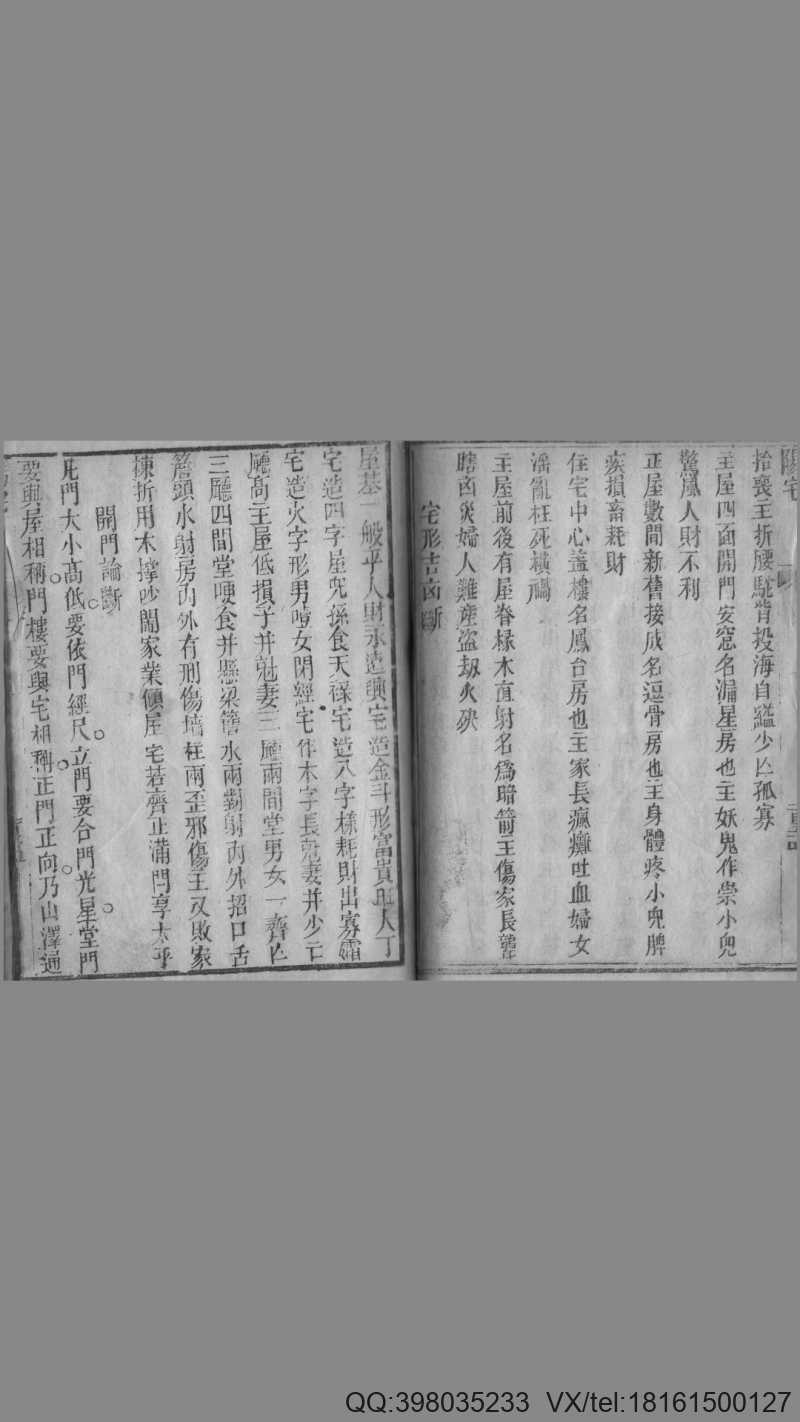 陽宅
抬喪主折腰駝背投海自縊少亡孤寡
主屋四面開門安窓名漏星房也主妖鬼作祟小兒
驚風人財不利
正屋數間新舊接成名逗骨房也主身體疼小兒脾
疾損畜耗財
住宅中心蓋樓名鳳台房也主家長瘋癱吐血婦女
淫亂枉死橫禍
主屋前後有屋脊椽木直射名爲暗箭主傷家長聾
瞎凶災婦人難產盜刼火殃
宅形吉凶斷
屋基一般平人財永遠興宅造金斗形富貴旺人丁
宅造四字屋兒孫食天祿宅造八字樣耗財出寡孀
宅造火字形男啼女閉經宅作木字長尅妻并少亡
廳高主屋低損子并尅妻三廳兩間堂男女一齊亡
三廳四間堂哽食并懸梁簷水兩對射內外招口舌
簷頭水射房內外有刑傷墙柱兩歪邪傷主又敗家
棟折用木撑吵閙家業傾屋宅若齊正滿門享太平
開門論斷
凡門大小高低要依門經尺立門要合門光星堂門
要與屋相稱門樓要與宅相稱正門正向乃山澤通
QQ:398035233 VX/tel:18161500127